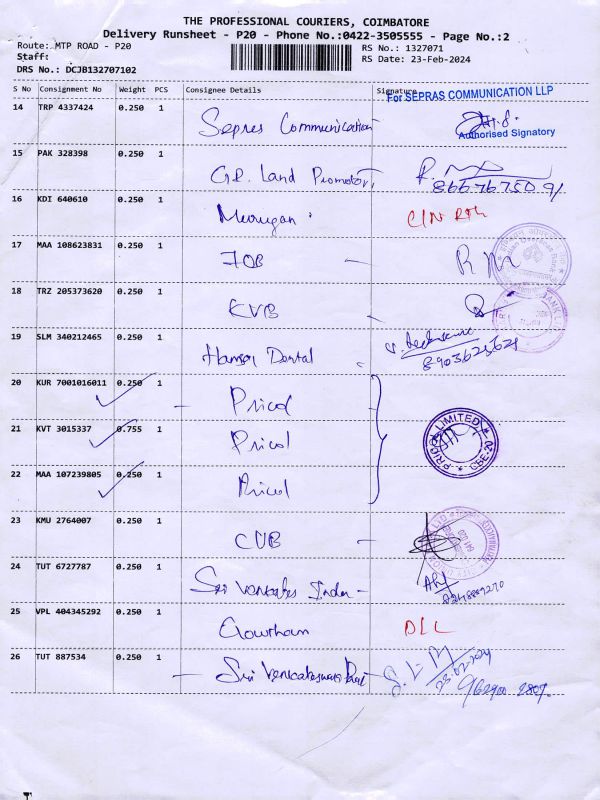 THE PROFESSIONAL COURIERS, COIMBATORE
Delivery Runsheet - P20 - Phone No.:0422-3505555 - Page No.:2
Route: MTP ROAD - P20
RS No.: 1327071
Staff:
RS Date: 23-Feb-2024
DRS No.: DCJB132707102
S No Consignment No Weight PCS Consignee Details Signature
For SEPRAS COMMUNICATION LLP
14 TRP 4337424 0.250 1 Sepras Communication
Authorised Signatory
15 PAK 328398 0.250 1 G.R. Land Promotors
16 KDI 640610 0.250 1 Murugan
17 MAA 108623831 0.250 1 IOB
18 TRZ 205373620 0.250 1 KVB
19 SLM 340212465 0.250 1 Dental
20 KUR 7001016011 0.250 1 Pricol
21 KVT 3015337 0.755 1 Pricol
PRICOL LIMITED CBE-20
22 MAA 107239805 0.250 1 Pricol
23 KMU 2764007 0.250 1 CUB
24 TUT 6727787 0.250 1 Sri
25 VPL 404345292 0.250 1 Gowtham DLC
26 TUT 887534 0.250 1 Sri
23-02-2024